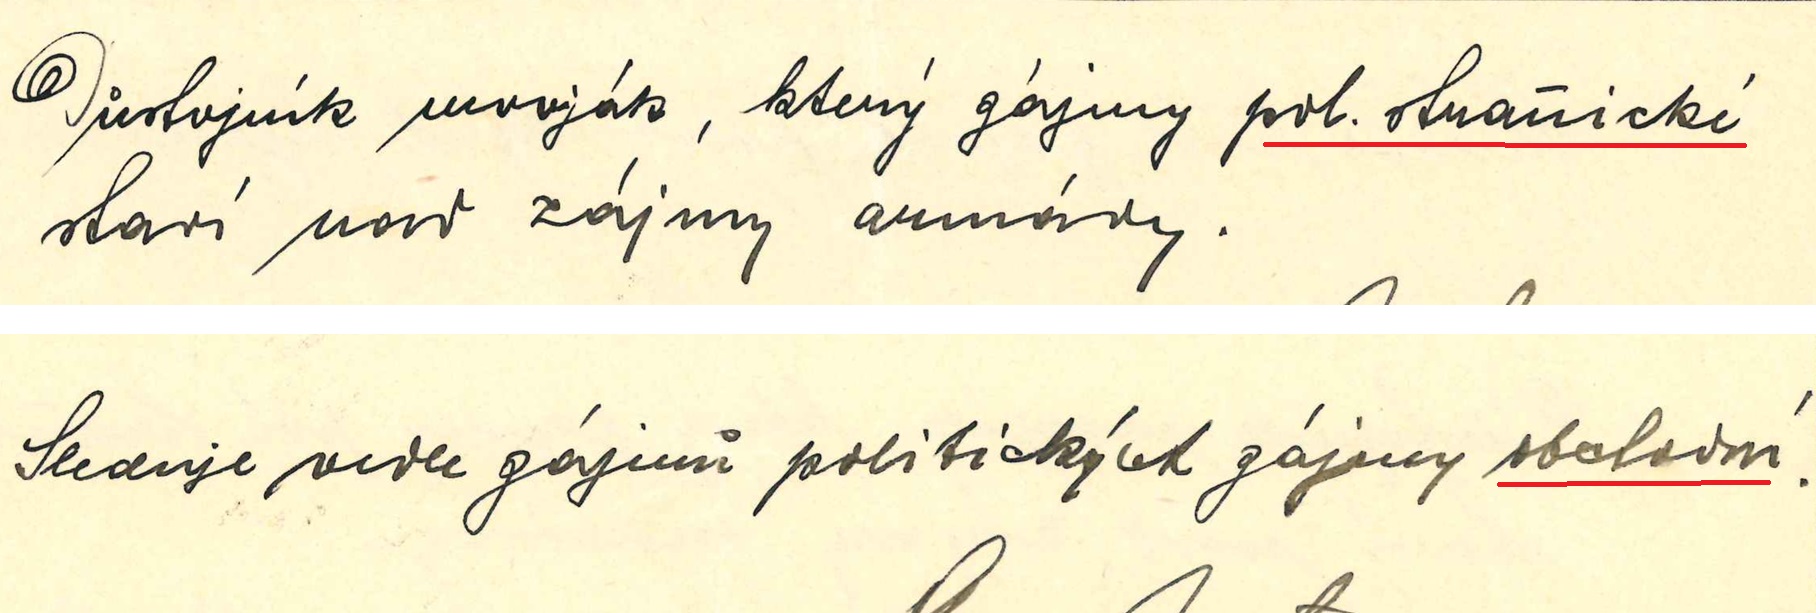 Důstojník nevoják, který zájmy pol. stranické
staví nad zájmy armády.
Sleduje vedle zájmů politických zájmy obchodní.